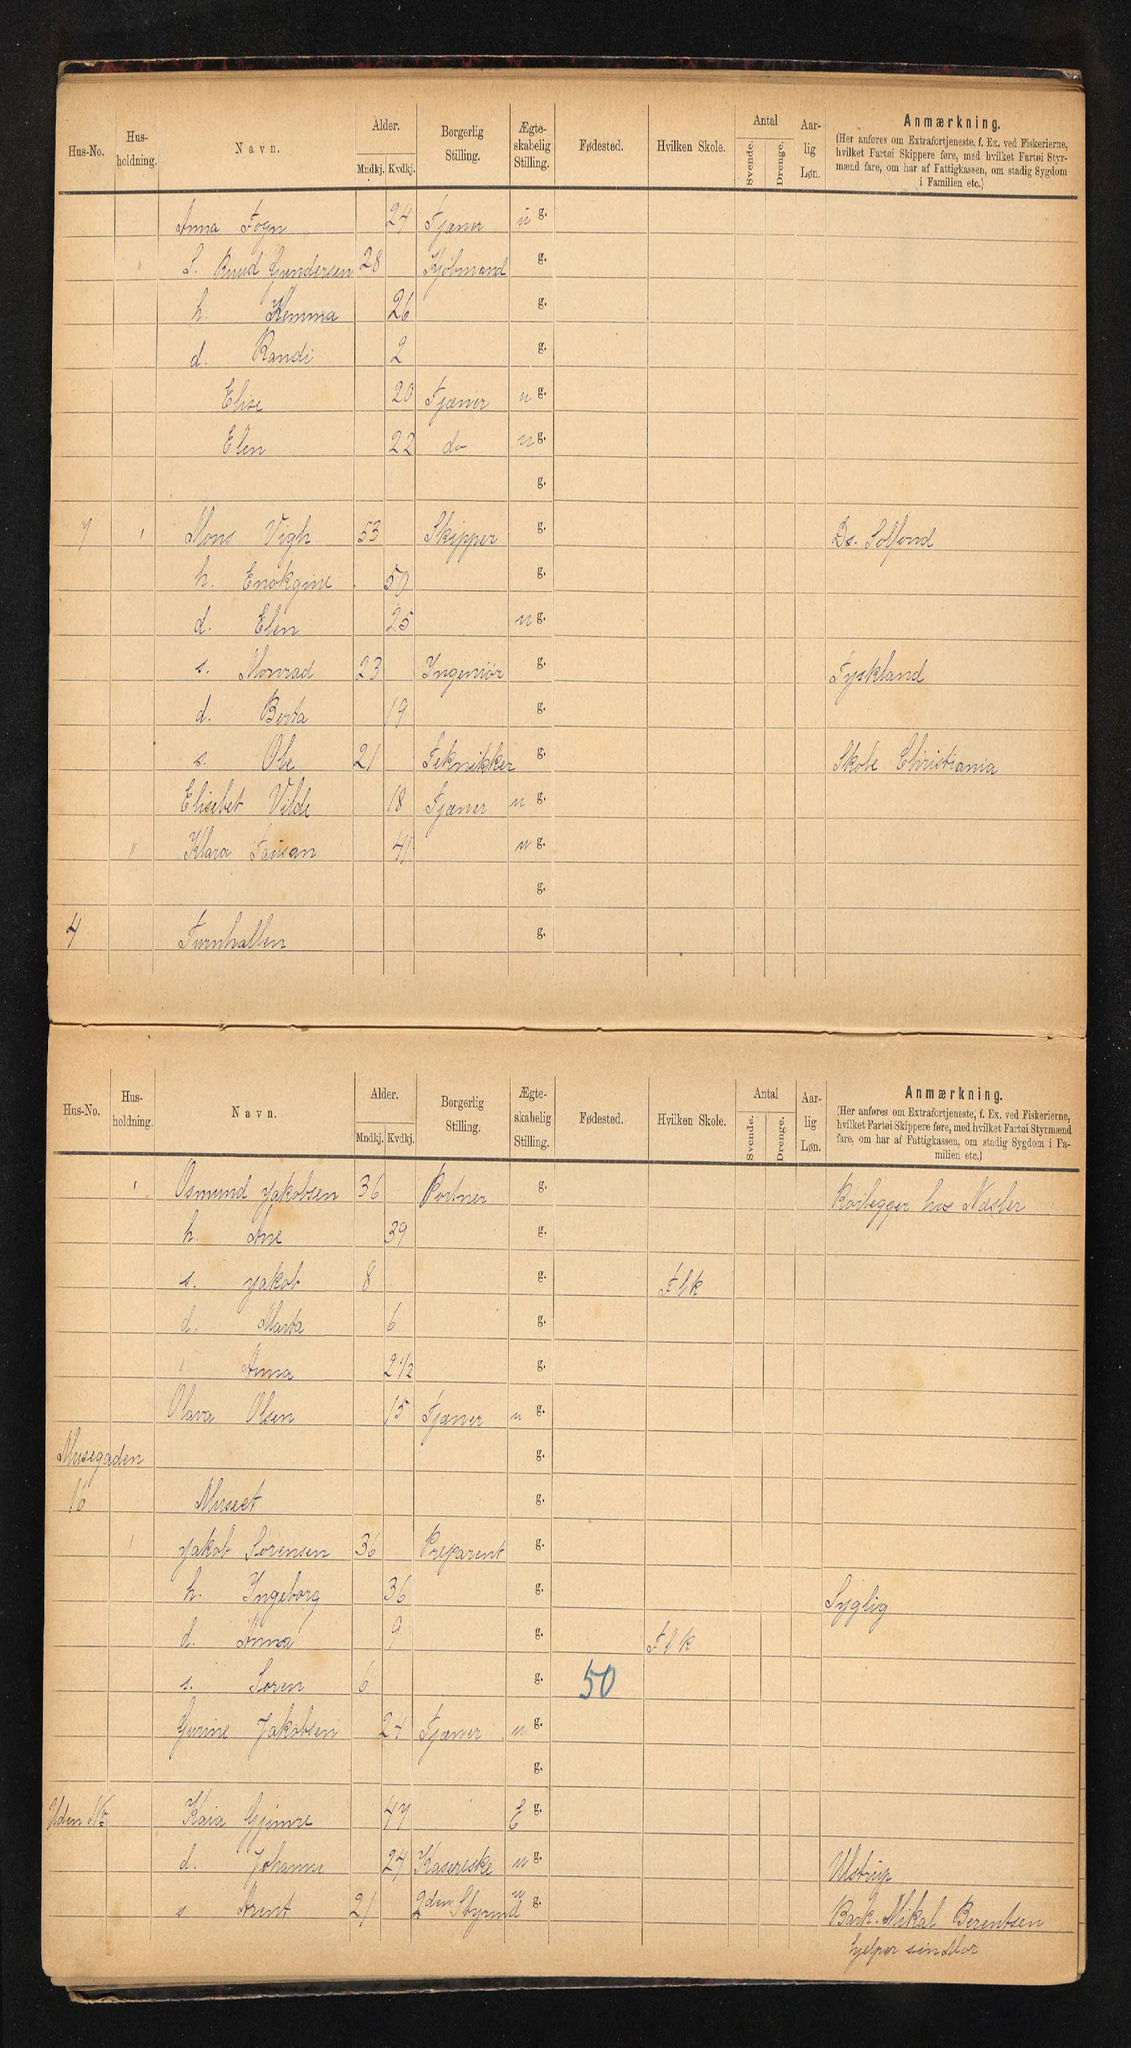 Hus-No. Hus-holdning. Navn. Alder. Mndkj. Kvdkj. Borgerlig Stilling. Ægte-skabelig Stilling. Fødested. Hvilken Skole. Antal Svende. Drenge. Aar-lig Løn. Anmærkning.
(Her anføres om Extrafortjeneste, f. Ex. ved Fiskerierne, hvilket Fartøi Skippere føre, med hvilket Fartøi Styrmænd fare, om har af Fattigkassen, om stadig Sygdom i Familien etc.)
Anna Fogn 24 Tjæner u g.
" L. Knud Gundersen 28 Kjøbmand g.
h. Hemma 26 g.
d. Randi 2 g.
Elise 20 Tjæner u g.
Elen 22 do u g.
g.
7 ' Mons Vigh 53 Skipper g. Ds. Solfond
h. Enokgine 50 g.
d. Elen 25 u g.
s. Monrad 23 Ingeniør g. Tyskland
d. Berta 19 g.
s. Ole 21 Teknikker g. Skole Christiania
Elisebet Vilde 18 Tjæner u g.
" Klara 41 u g.
g.
4 Turnhallen g.
Hus-No. Hus-holdning. Navn. Alder. Mndkj. Kvdkj. Borgerlig Stilling. Ægte-skabelig Stilling. Fødested. Hvilken Skole. Antal Svende. Drenge. Aar-lig Løn. Anmærkning.
(Her anføres om Extrafortjeneste, f. Ex. ved Fiskerierne, hvilket Fartøi Skippere føre, med hvilket Fartøi Styrmænd fare, om har af Fattigkassen, om stadig Sygdom i Familien etc.)
' Osmund Jakobsen 36 Portner g. Rørlegger hos Næsler
h. Ane 39 g.
s. Jakob 8 g. F l k
d. Marta 6 g.
' Anna 2 1/2 g.
Olava Olsen 15 Tjæner u g.
Musegaden g.
16 Museet g.
' Jakob Sørensen 36 Preparent g.
h. Ingeborg 36 g. Syglig
d. Anna 9 g. F l k
s. Søren 6 g. 50
Gurine Jakobsen 24 Tjæner u g.
g.
Uden No Kaia Gjimre 47 E g.
d. Johanne 27 Kasereske u g. Ulstrup
s Arent 21 2den Styrmd u g. Bark. Mikal Berentsen
hjelper sin Mor